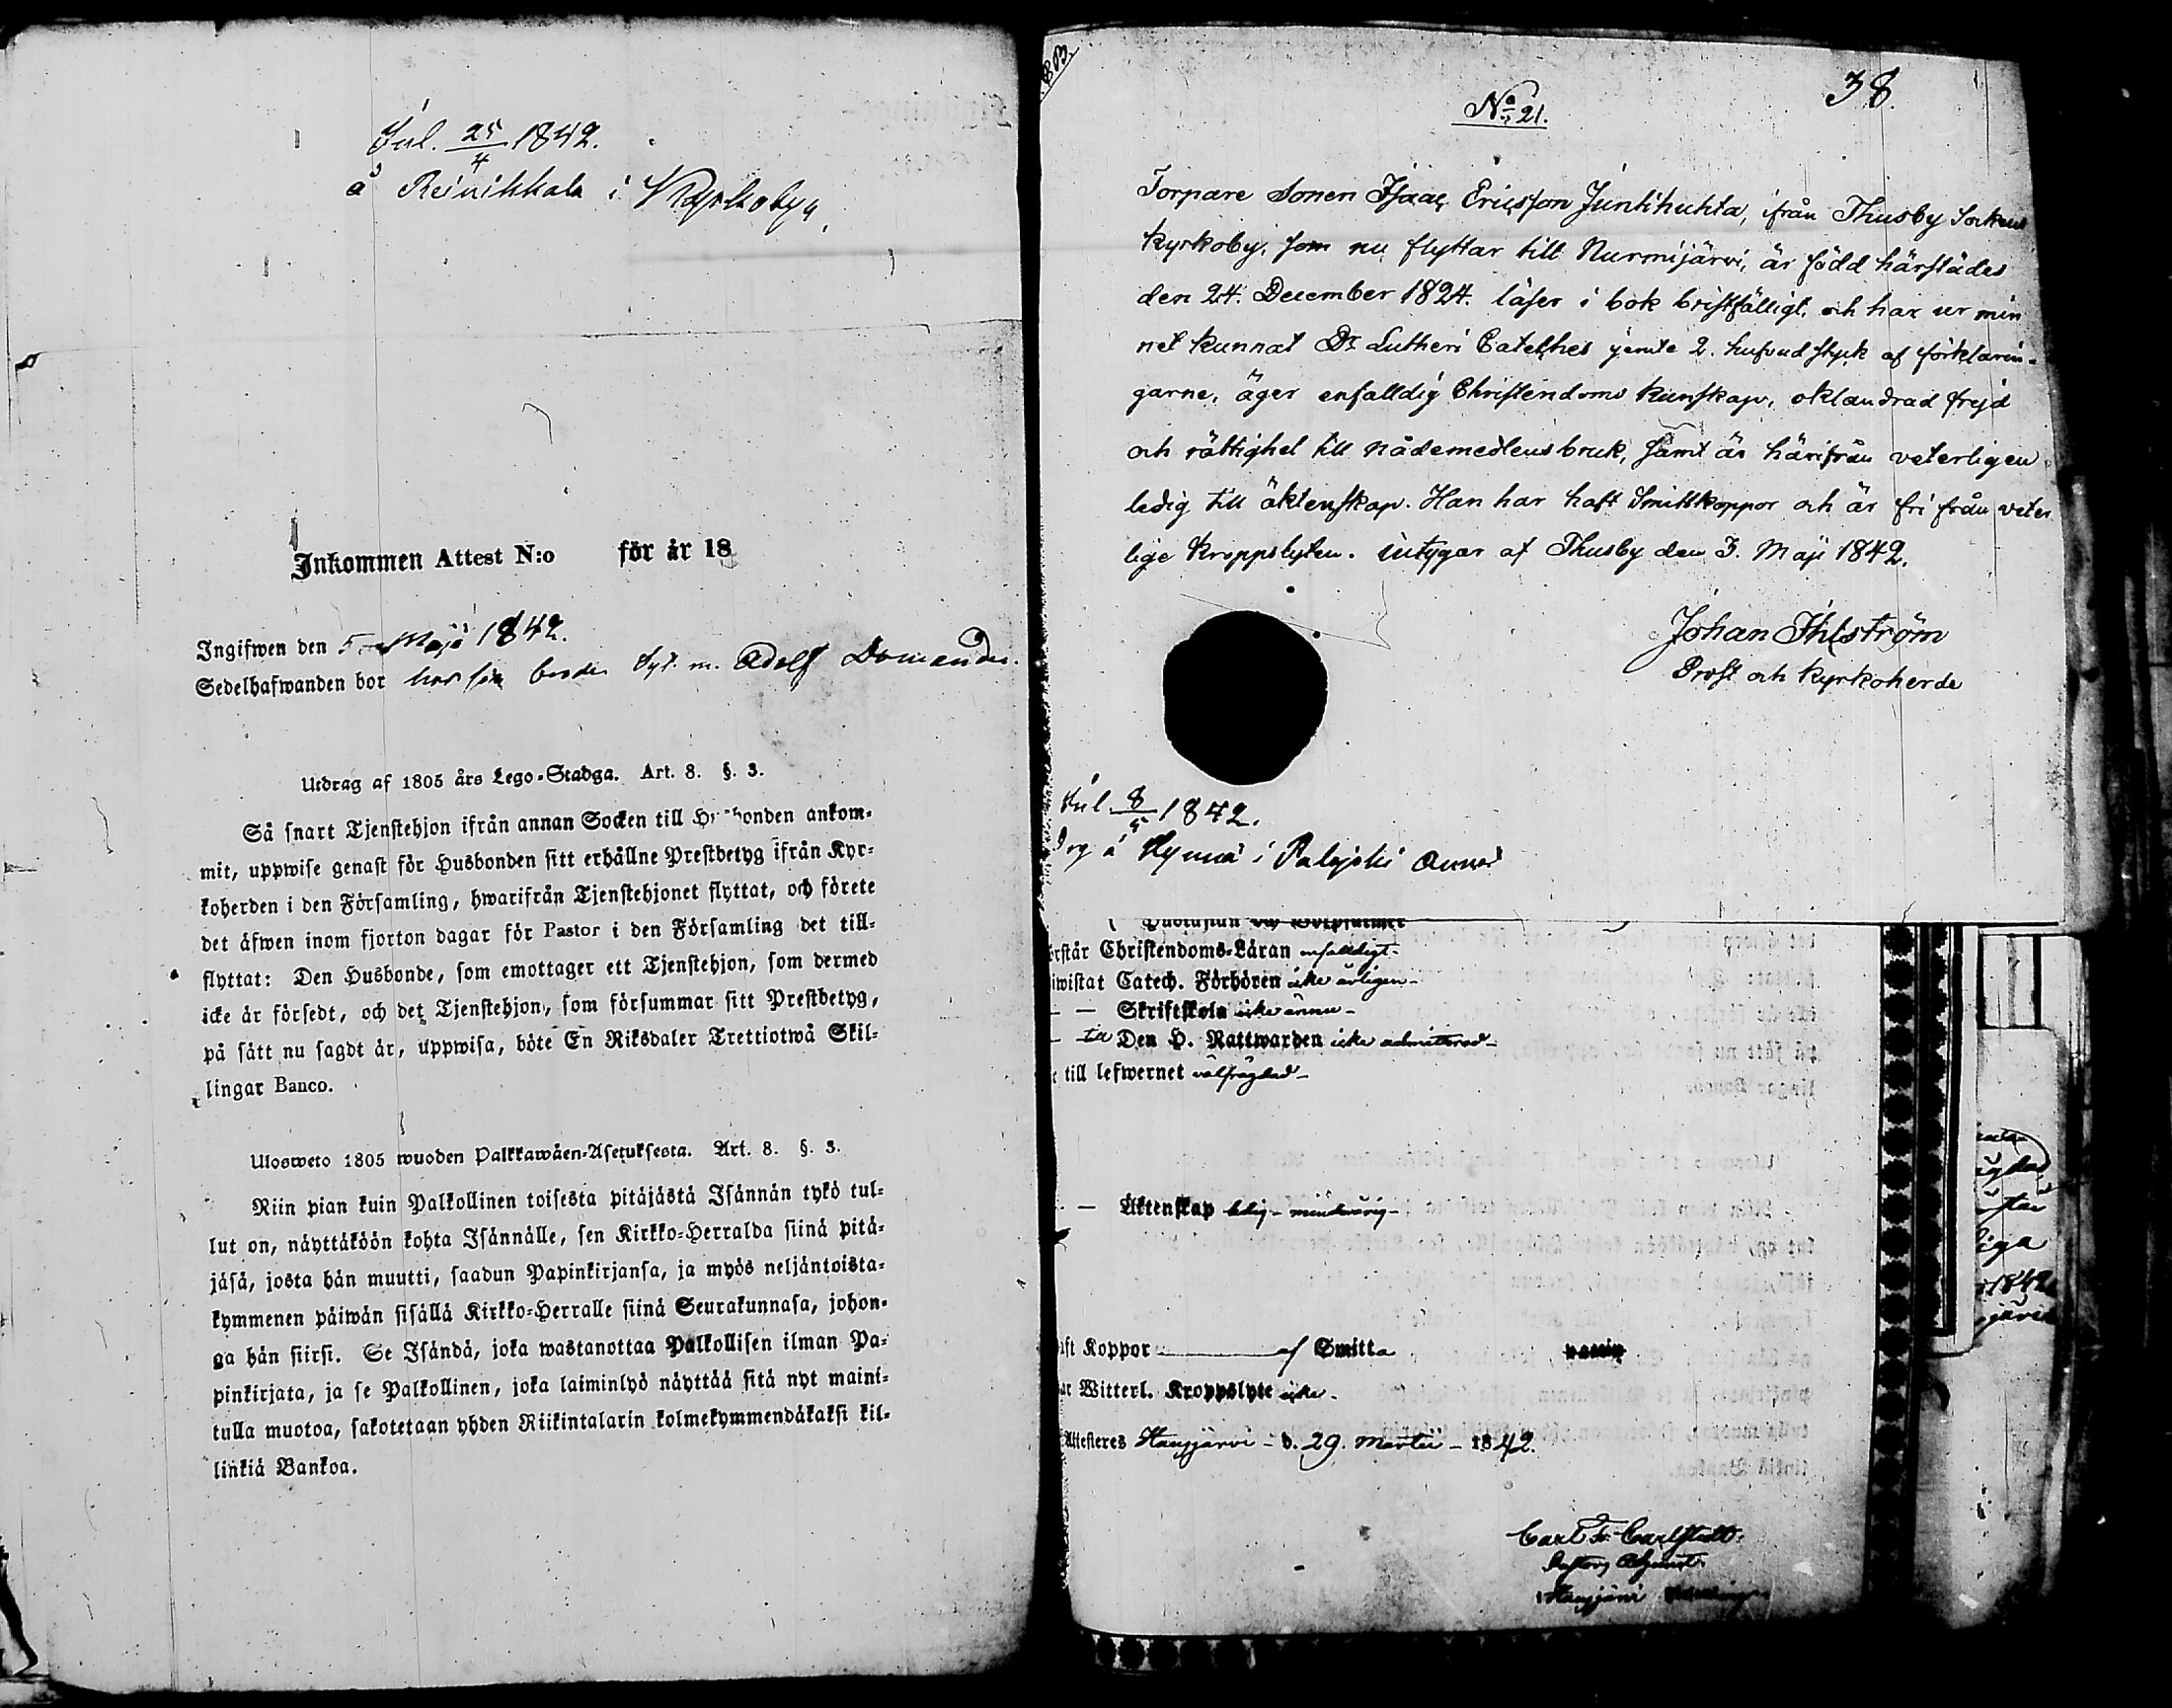 Inl. 25/4 1842.
å Reinikkala i Kyrkoby,
Inkommen Attest N:o för år 18
Ingifwen den 5 Maji 1842.
Sedelhafwanden bor hos sin broder Syt. m. Adolf
Utdrag af 1805 års Lego-Stadga. Art. 8. §. 3.
Så snart Tjenstehjon ifrån annan Socken till ankom-
mit, uppwise genast för Husbonden sitt erhållne Prestbetyg ifrån Kyr-
koherden i den Församling, hwarifrån Tjenstehjonet flyttat, och förete
det äfwen inom fjorton dagar för Pastor i den Församling det till-
flyttat: Den Husbonde, som emottager ett Tjenstehjon, som dermed
icke är försedt, och det Tjenstehjon, som försummar sitt Prestbetyg,
på sätt nu sagdt är, uppwisa, böte En Riksdaler Trettiotwå Skil-
lingar Banco.
Ulosweto 1805 wuoden Palkkawäen-Asetuksesta. Art. 8. §. 3.
Niin pian kuin Palkollinen toisesta pitäjästä Isännän tykö tul-
lut on, näyttäköön kohta Isännälle, sen Kirkko-Herralda siinä pitä-
jäsä, josta hän muutti, saadun Papinkirjansa, ja myös neljäntoista-
kymmenen päiwän sisällä Kirkko-Herralle siinä Seurakunnasa, johon-
ga hän siirsi. Se Isändä, joka wastanottaa Palkollisen ilman Pa-
pinkirjata, ja se Palkollinen, joka laiminlyö näyttää sitä nyt maini-
tulla muotoa, sakotetaan yhden Riikintalarin kolmekymmendäkaksi kil-
linkiä Bankoa.
38.
No 21.
Torpare Sonen Isaac Ericsson Juntihuhta, ifrån Thusby Sockens
kyrkoby, som nu flyttar till Nurmijärvi, är född härstädes
den 24. December 1824. läser i bok bristfälligt, och har ur min
net kunnat Dr Lutheri Cateches jemte 2. hufvud styck af förklarin-
garne, äger enfalldig Christendoms kunskap, oklandrad frejd
och rättighet till nådemedlens bruk, samt är härifrån veterligen
ledig till äktenskap. Han har haft Smittkoppor och är fri från veter
lige kroppslyten. intygar af Thusby den 3. Maji 1842.
Johan Ihlström
Prost och kyrkoherde
Inl 8/5 1842.
i Palojoki
rstår Christendoms-Läran enfalldigt-
iwistat Catech. Förhören icke årligen-
— — Skriftskola icke ännu-
Den H. Nattwarden icke admitterad-
till lefwernet välfrägdad-
— Äktenskap ledig- minderårig-
ft Koppor af Smitta
ar Witterl. Kroppslyte icke-
Attesteres Hausjärvi- d. 29. Martii- 1842.
Carl F. Carlstedt.
Pastors Adjunct.
i Hausjärvi
1842